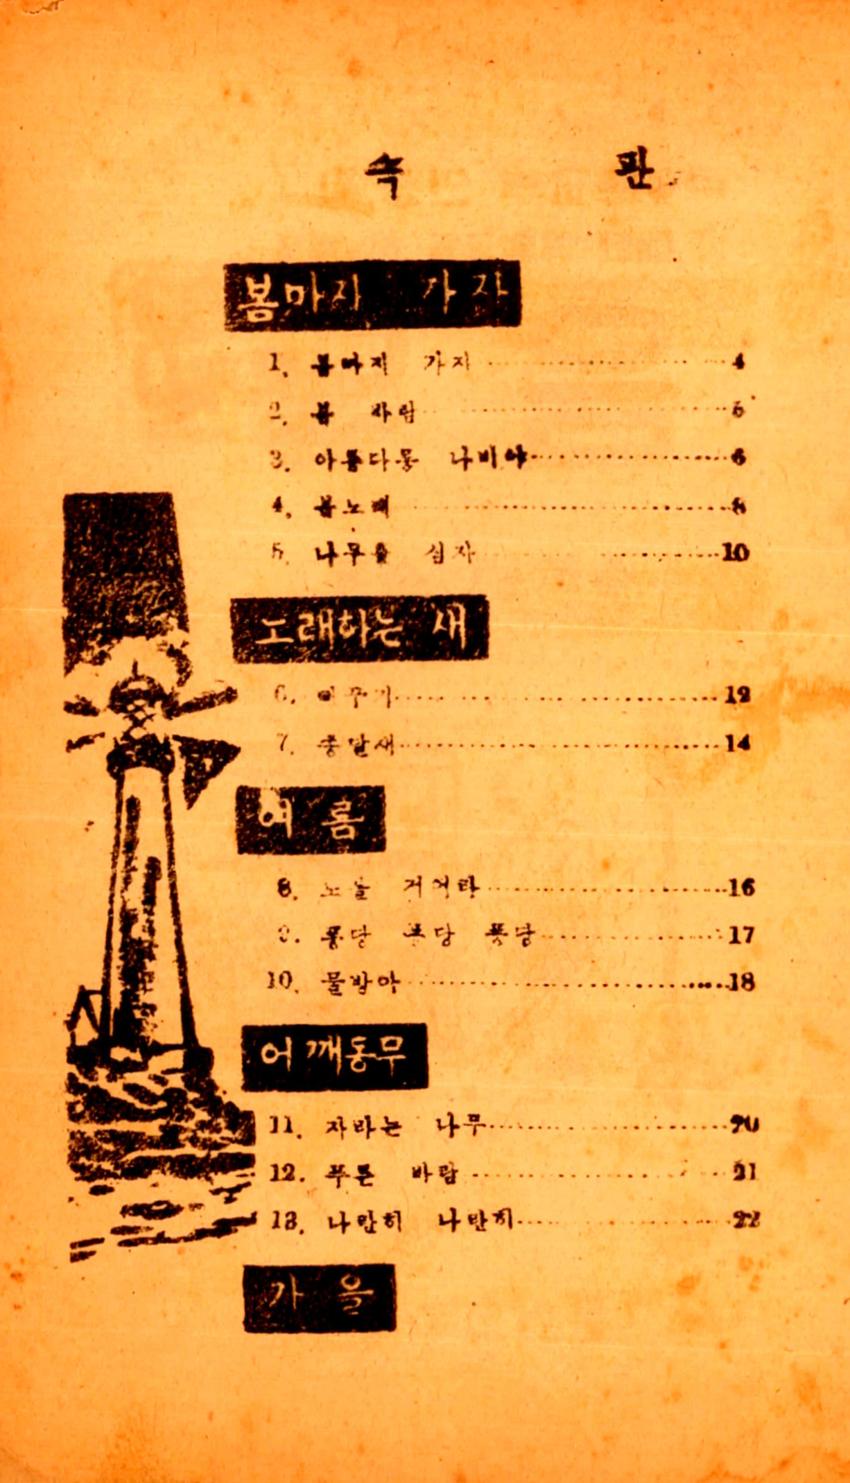 속 판
봄마지 가자
1. 봄마지 가자 4
2. 봄 바람 5
3. 아름다운 나비야 6
4. 봄노래 8
5. 나무를 심자 10
노래하는 새
6. 12
7. 종달새 14
여 름
8. 노를 저어라 16
9. 퐁당 퐁당 퐁당 17
10. 물방아 18
어깨동무
11. 자라는 나무 20
12. 푸른 바람 21
13. 나란히 나란히 22
가 을